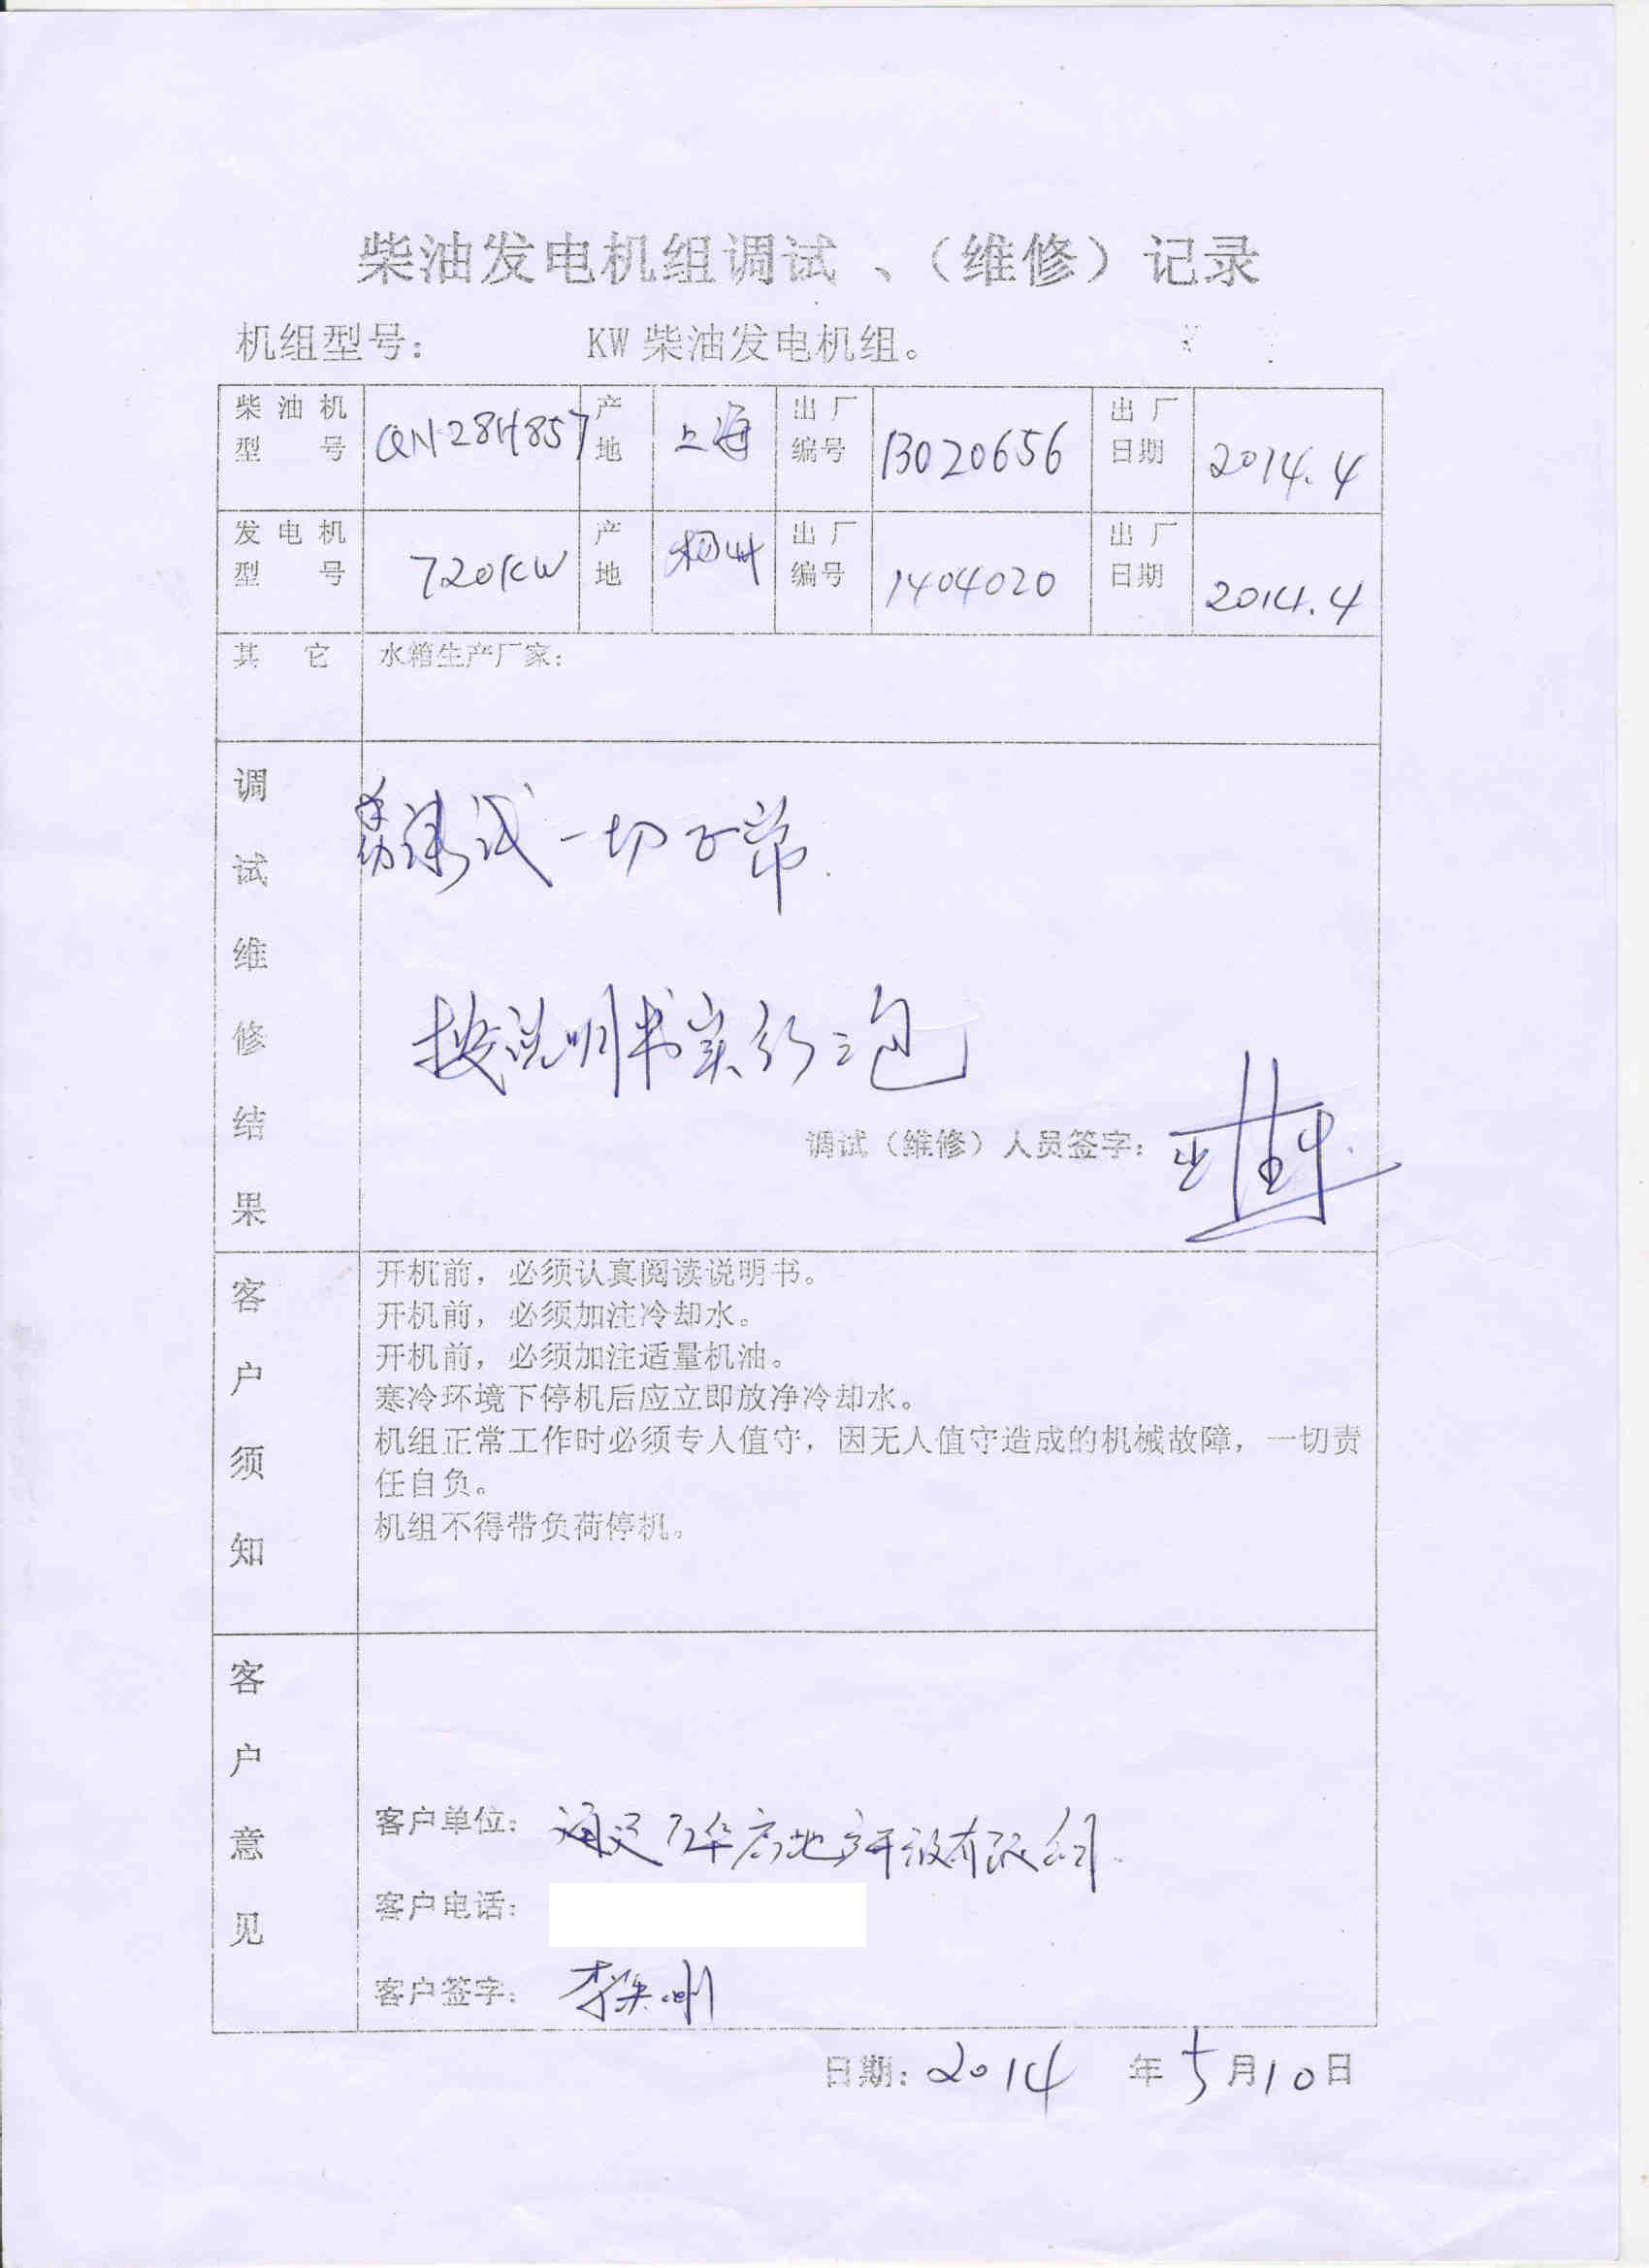 柴油发电机组调试 、（维修）记录
机组型号： KW 柴油发电机组。
柴油机型号 QN28H857 产地 上海 出厂编号 13020656 出厂日期 2014.4
发电机型号 720KW 产地 扬州 出厂编号 1404020 出厂日期 2014.4
其它 水箱生产厂家：
调试维修结果
试一切正常.
按说明书实行三包
调试（维修）人员签字：
客户须知
开机前，必须认真阅读说明书。
开机前，必须加注冷却水。
开机前，必须加注适量机油。
寒冷环境下停机后应立即放净冷却水。
机组正常工作时必须专人值守，因无人值守造成的机械故障，一切责
任自负。
机组不得带负荷停机。
客户意见
客户单位： 房地产开发有限公司
客户电话：
客户签字： 李
日期：2014 年 5月10日